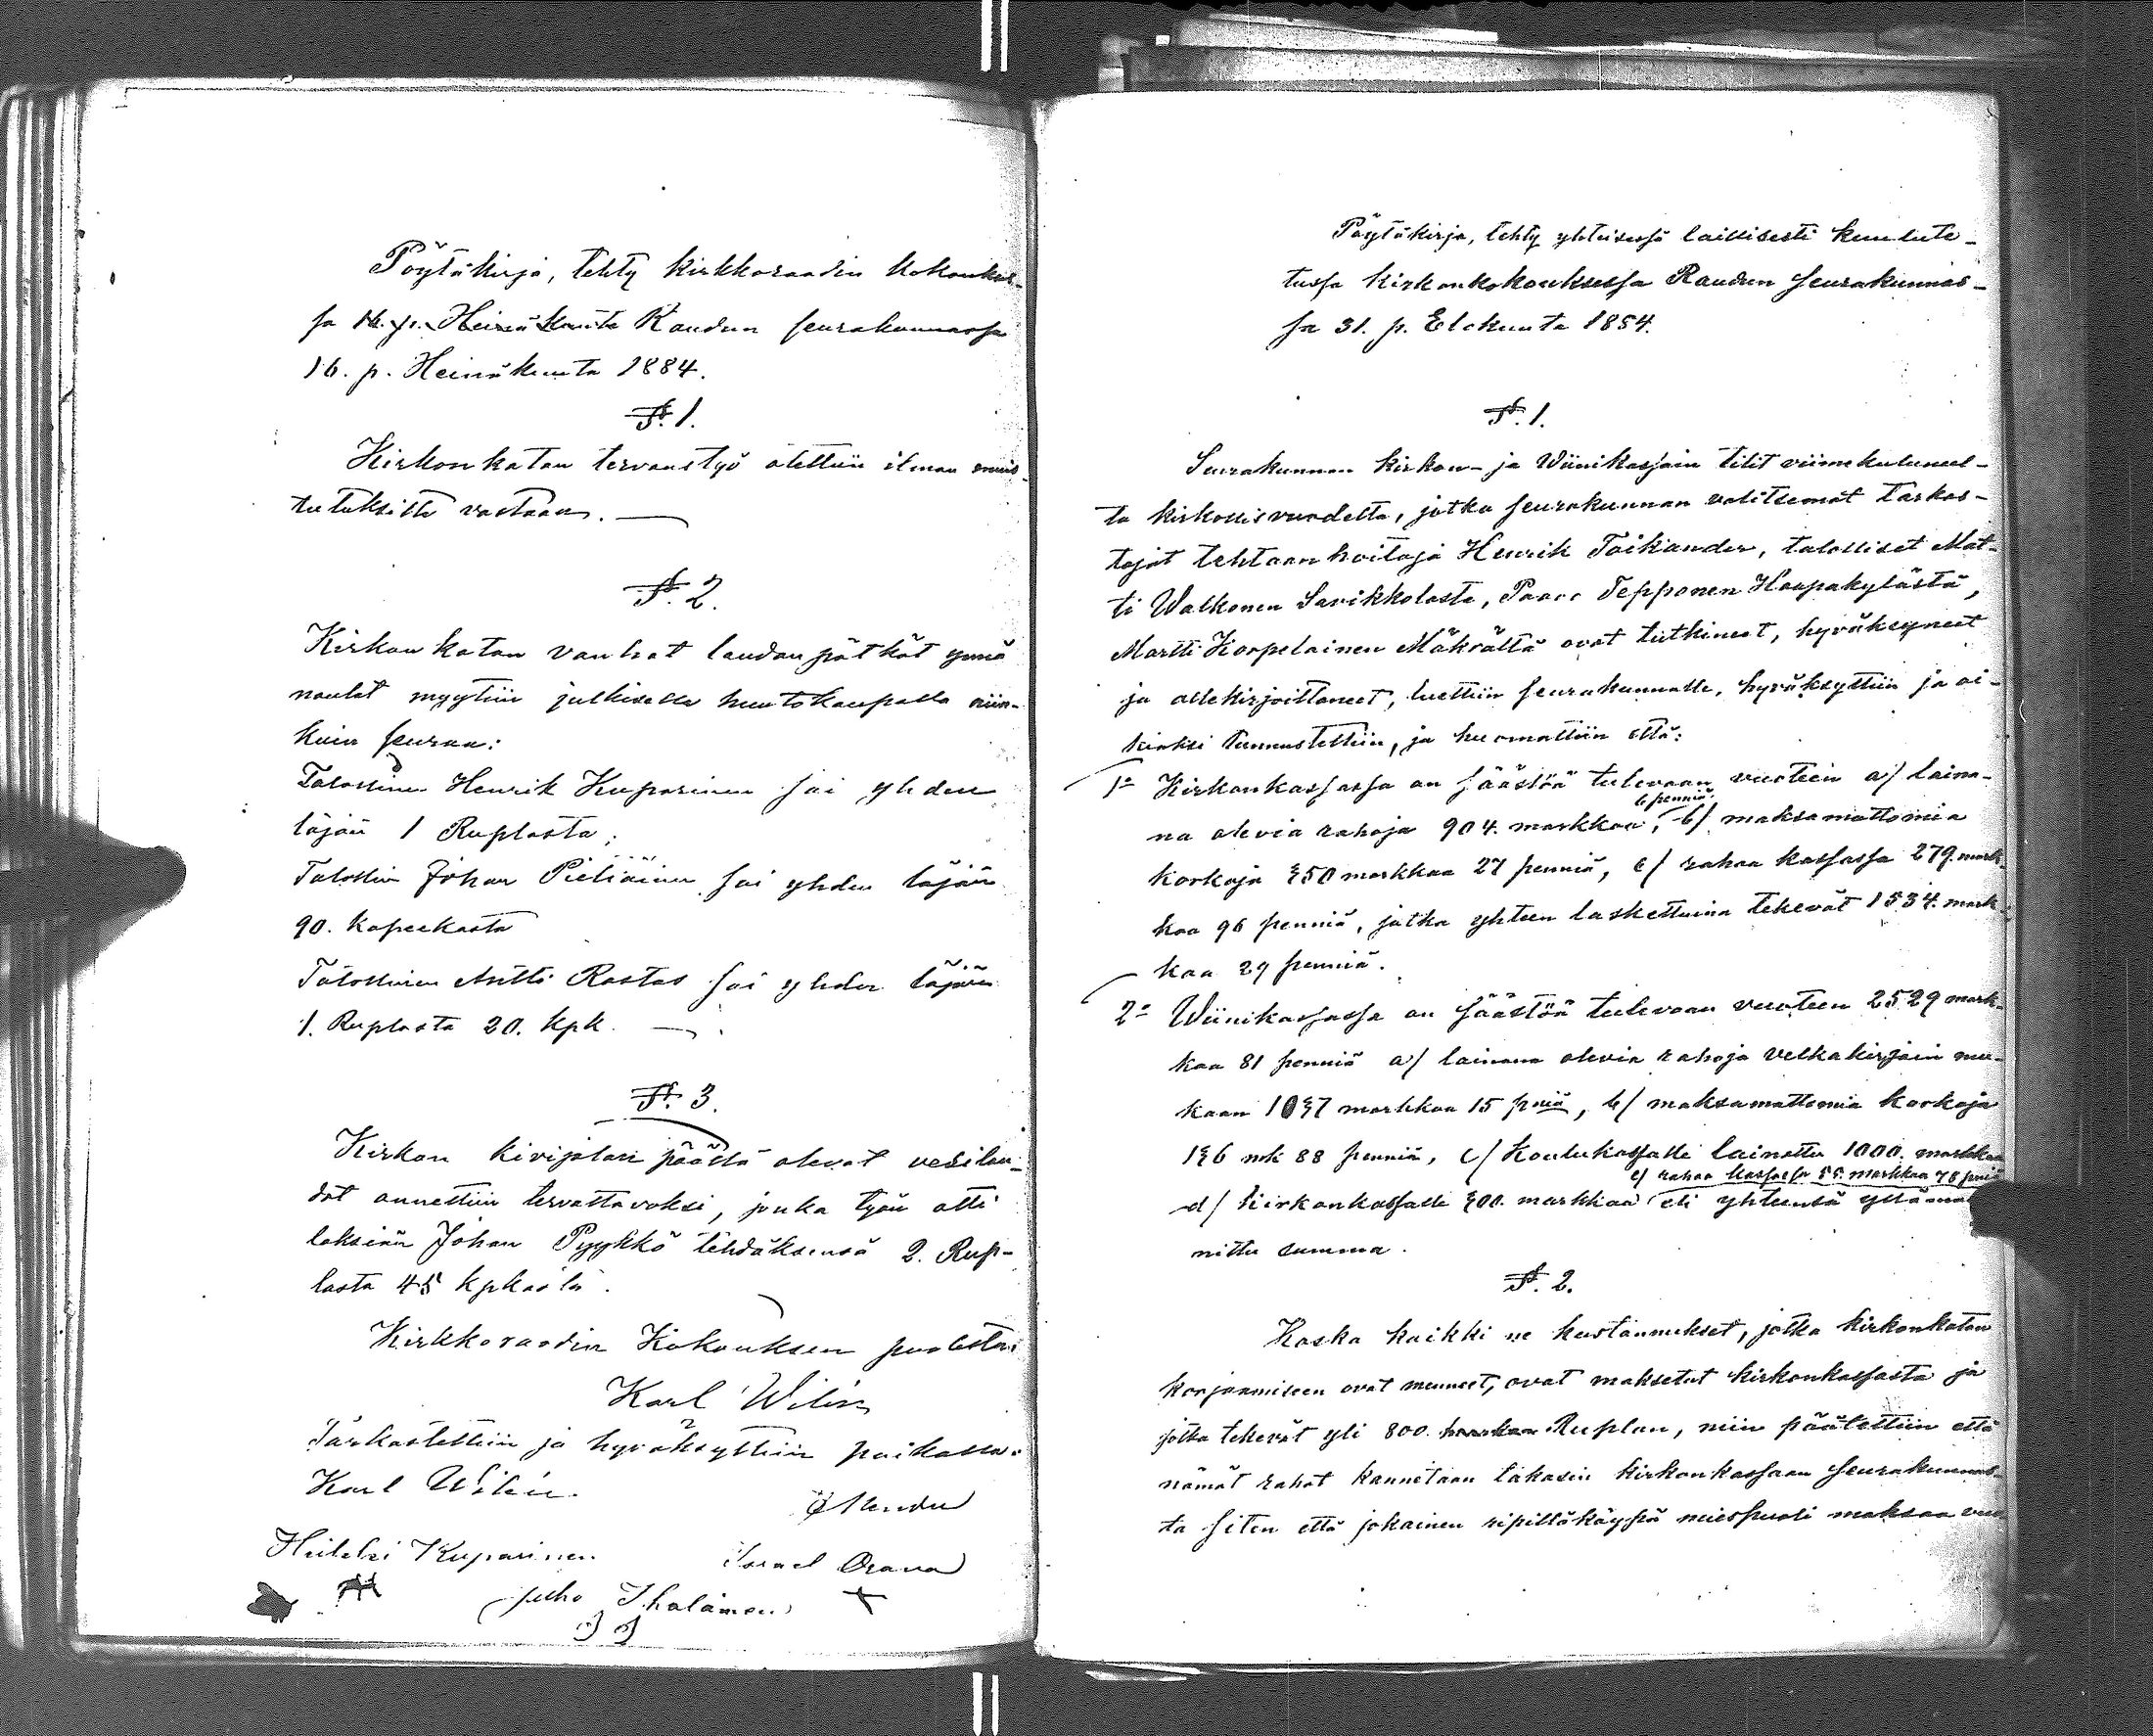 Pöytäkirja, tehty kirkkoraadin kokoukses-
sa 16. p. Heinäkuuta Raudun seurakunnassa
16. p. Heinäkuuta 1884.
§. 1.
Kirkon katon tervaustyö otettiin ilman muis-
tutuksitta vastaan. —
§. 2.
Kirkon katon vanhat laudan pätkät ynnä
naulat myytiin julkisella huutokaupalla niin-
kuin seuraa:
Talollinen Henrik Kuparinen sai yhden
läjän 1 Ruplasta;
Talollin Johan Pieliäinen sai yhden läjän
90. kopeekasta
Talollinen Antti Rastas sai yhden läjän
1. Ruplasta 20. kpk. —
§. 3.
Kirkon kivijalan päällä olevat vesilau-
dat annettiin tervattavaksi, jonka työn otti
laksiaan Johan Pyykkö tehdäksensä 2. Rup-
lasta 45 kpkasta.
Kirkkoraadin Kokouksen puolesta:
Karl Wilén
Tarkastettiin ja hyväksyttiin paikassa:
Karl Wilén.
Heikki Kuparinen Israel Orava
Juho Ihalainen
Pöytäkirja, tehty yhteisessä laillisesti kuulute-
tussa kirkonkokouksessa Raudun seurakunnas-
sa 31. p. Elokuuta 1884.
§. 1.
Seurakunnan kirkon- ja Wiinikassain tilit viimekuluneel-
ta kirkollisvuodelta, jotka seurakunnan valitsemat tarkas-
tajat tehtaanhoitaja Henrik Toikander, talolliset Mat-
ti Walkonen Savikkolasta, Paavo Tepponen Haapakylästä,
Martti Korpelainen Mäkrältä ovat tutkineet, hyväksyneet
ja allekirjoittaneet, luettiin seurakunnalle, hyväksyttiin ja oi-
kiaksi tunnustettiin, ja huomattiin että:
1= Kirkonkassassa on säästöä tulevaan vuoteen a/ laina-
na olevia rahoja 904. markkaa 6 penniä, b/ maksamattomia
korkoja 350 markkaa 27 penniä, c/ rahaa kassassa 279. mark-
kaa 96 penniä, jotka yhteen laskettuina tekevät 1534. mark-
kaa 29 penniä.
2= Wiinikassassa on säästöä tulevaan vuoteen 2529 mark-
kaa 81 penniä a/ lainana olevia rahoja velkakirjain mu-
kaan 1037 markkaa 15 pniä, b/ maksamattomia korkoja
136 mk 88 penniä, c/ Koulukassalle lainattu 1000. markkaa
d/ kirkonkassalle 300. markkaa e/ rahaa kassassa 55. markkaa 78 pniä eli yhteensä yllämai-
nittu summa.
§. 2.
Koska kaikki ne kustannukset, jotka kirkonkaton
korjaamiseen ovat menneet, ovat maksetut kirkonkassasta ja
jotka tekevät yli 800. Ruplan, niin päätettiin että
nämät rahat kannetaan takasin kirkonkassaan seurakunnal-
ta siten että jokainen ripilläkäypä miespuoli maksaa